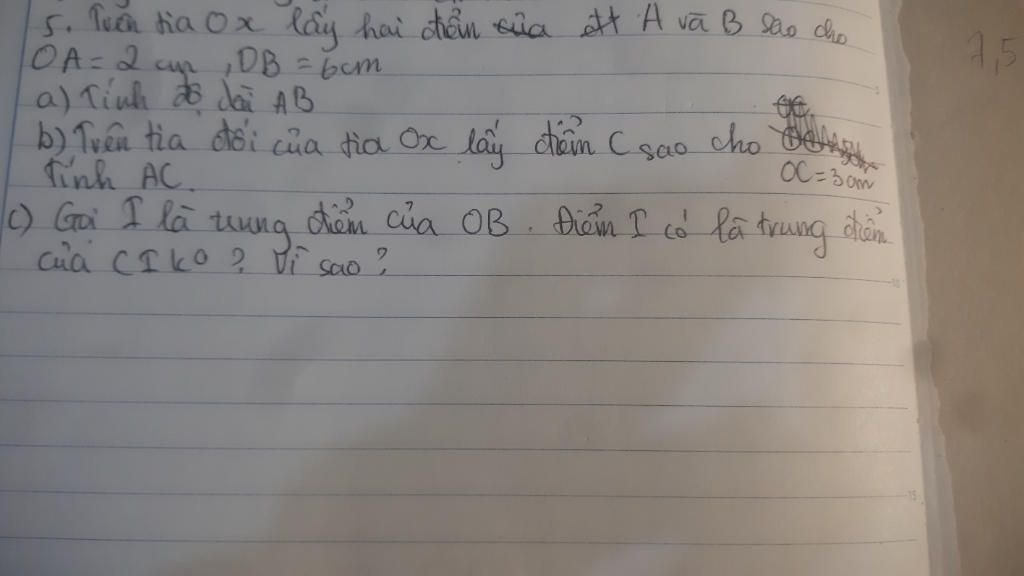 5. Trên tia Ox lấy hai điểm của đt A và B sao cho
OA = 2 cm, OB = 6cm
a) Tính độ dài AB
b) Trên tia đối của tia Ox lấy điểm C sao cho
OC = 3 cm
Tính AC.
c) Gọi I là trung điểm của OB. Điểm I có là trung điểm
của CI ko? Vì sao?
7,5